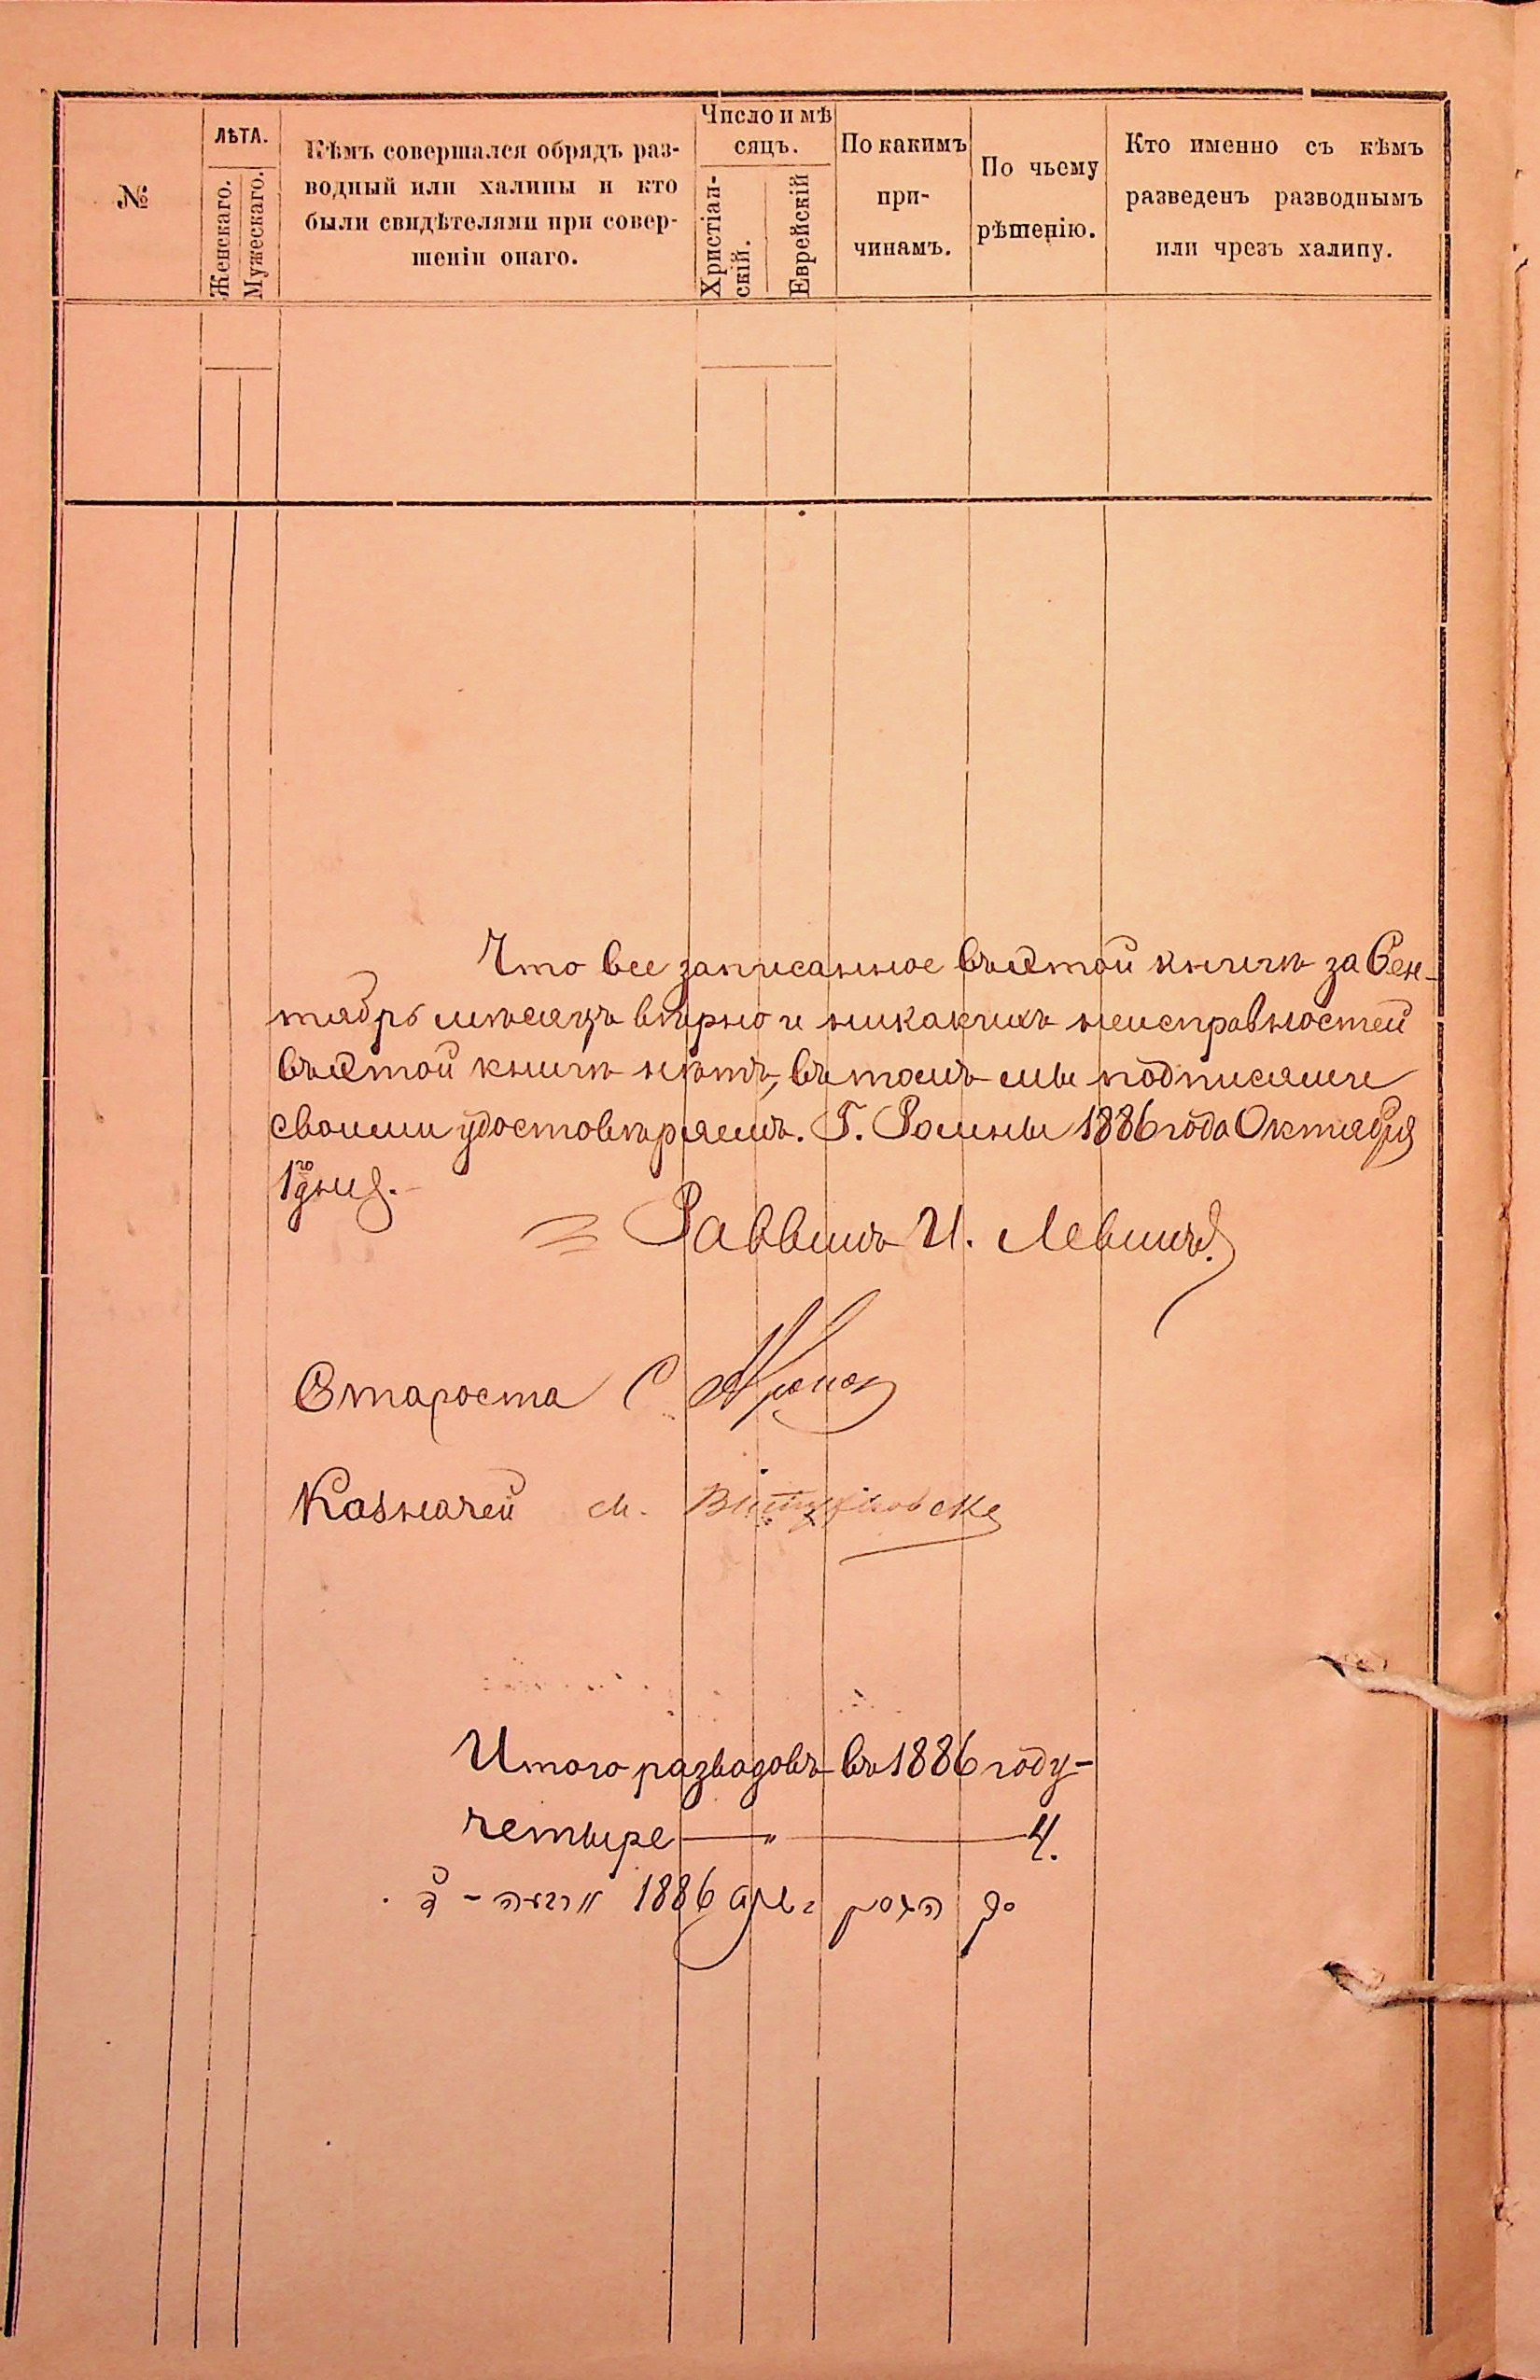 №
ЛѢТА.
Женскаго.
Мужескаго.
Кѣмъ совершался обрядъ раз-
водный или халицы и кто
были свидѣтелями при совер-
шеніи онаго.
Число и мѣ
сяцъ.
Христіан-
скій.
Еврейскій
По какимъ
при-
чинамъ.
По чьему
рѣшенію.
Кто именно съ кѣмъ
разведенъ разводнымъ
или чрезъ халицу.
Что все записанное въ этой книгѣ за Сен-
тябрь мѣсяцъ вѣрно и никакихъ неисправностей
въ этой книгѣ нѣтъ, въ томъ мы подписями
своими удостовѣряемъ. Г. Ромны 1886 года Октября
1го дня.
Раввинъ И. Левинъ
Староста С.
Казначей М.
Итого разводовъ въ 1886 году -
четыре — „ — 4.
סך הכל בשנת 1886 ארבעה - ד